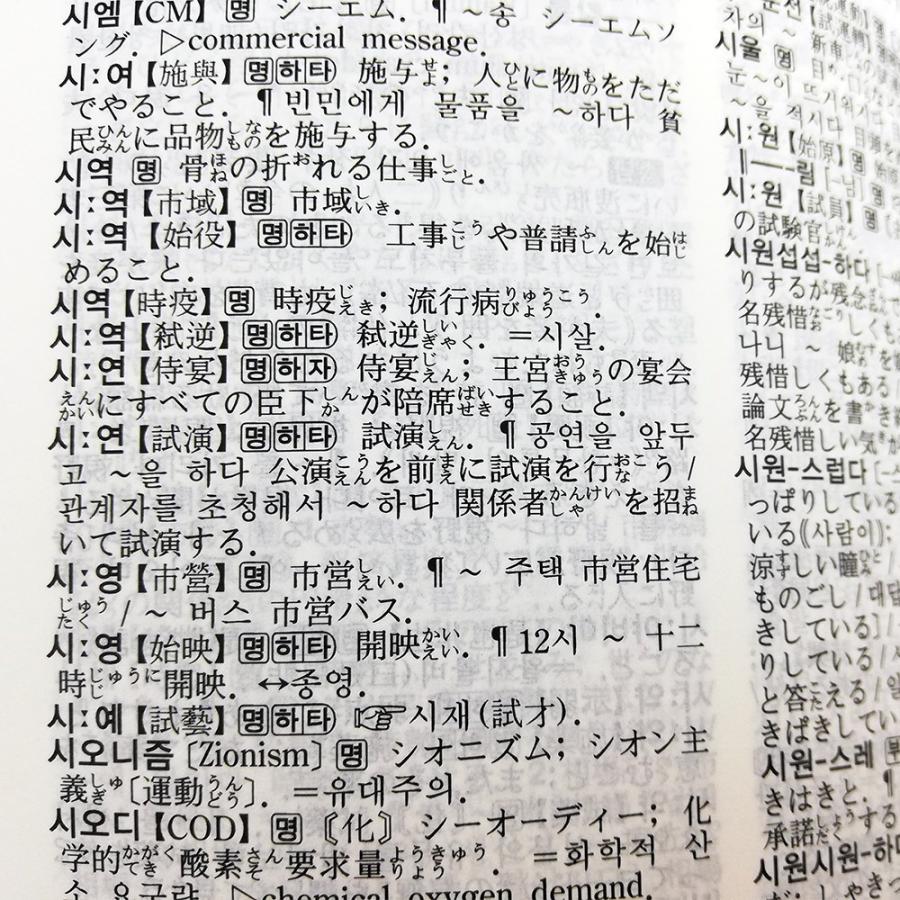 시엠【CM】 名 シーエム. ¶ ~송 シーエムソ
ング. ▷commercial message.
시ː여【施與】명하타 施与せよ; 人ひとに物ものをただ
でやること. ¶ 빈민에게 물품을 ~하다 貧
民ひんみんに品物しなものを施与する.
시역 명 骨ほねの折おれる仕事しごと.
시ː역【市域】명 市域しいき.
시ː역【始役】명하타 工事こうじや普請ふしんを始はじ
めること.
시역【時疫】명 時疫じえき; 流行病りゅうこうびょう.
시ː역【弑逆】명하타 弑逆しいぎゃく. =시살.
시ː연【侍宴】명하자 侍宴じえん; 王宮おうきゅうの宴会
えんかいにすべての臣下しんかが陪席ばいせきすること.
시ː연【試演】명하타 試演しえん. ¶공연을 앞두
고 ~을 하다 公演こうえんを前まえに試演を行おこなう /
관계자를 초청해서 ~하다 関係者かんけいしゃを招まね
いて試演する.
시ː영【市營】명 市営しえい. ¶ ~ 주택 市営住宅
じゅうたく / ~ 버스 市営バス.
시ː영【始映】명하타 開映かいえい. ¶12시 ~ 十二
時じゅうにじ開映. ↔종영.
시ː예【試藝】명하타 ☞시재(試才).
시오니즘〔Zionism〕명 シオニズム; シオン主
義しゅぎ〔運動うんどう〕. =유대주의.
시오디【COD】명〘化〙シーオーディー; 化
学的かがくてき酸素さんそ要求量ようきゅうりょう. =화학적 산
소 요구량. ▷chemical oxygen demand.
시울 명
시ː원【始原】명
시ː원【試員】명
の試験官
시원섭섭-하다
りするが残念
名残惜なごりおしくも
나니 ~
残惜しくもある
論文ろんぶんを書かき
名残惜しい気
시원-스럽다
っぱりしている
いる((사람이);
涼すずしい瞳ひとみ
ものごし / 대답
きしている] /
りしている /
と答こたえる /
きぱきしてい
시원-스레
きはきと. ¶
承諾しょうだくする
시원시원-하다